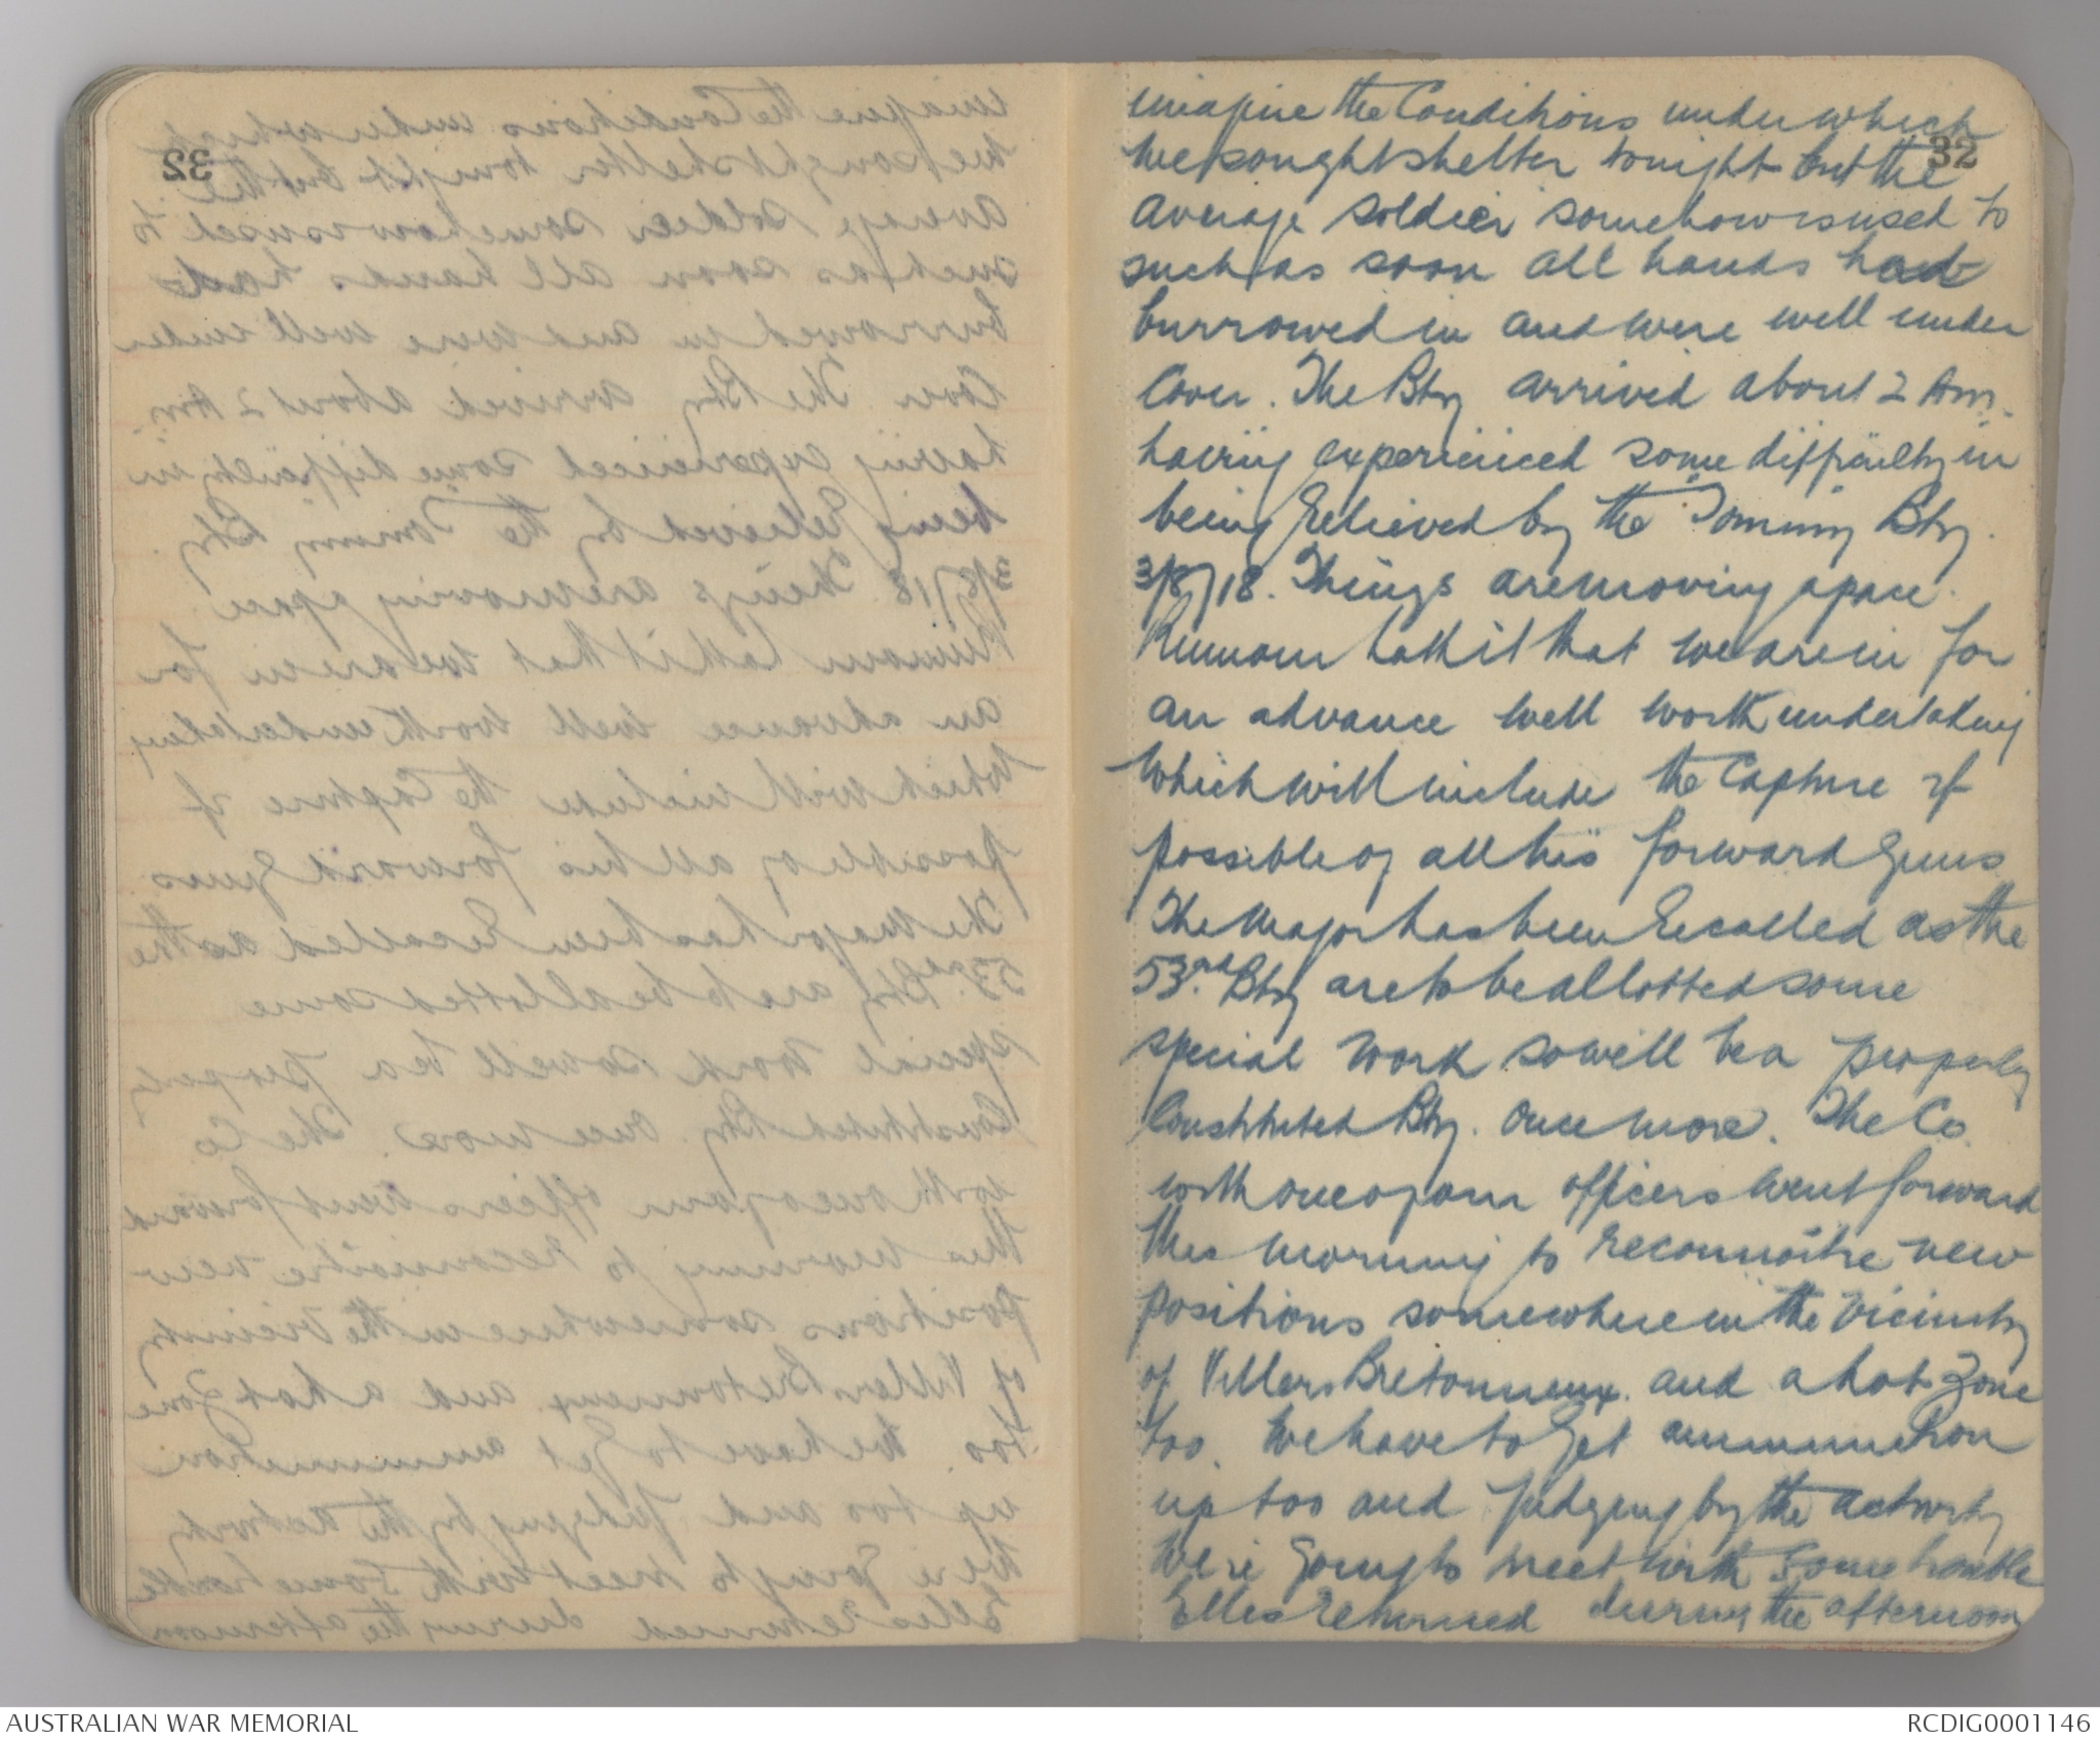 32
imagine the Conditions under which
we sought shelter tonight but the
average soldier somehow is used to
such as soon all hands had
burrowed in and were well under
Cover. The Bty arrived about 2 Am.
having experienced some difficulty in
being relieved by the Tommy Bty.
3/8/18. Things are moving apace.
Rumour hath it that we are in for
an advance well worth undertaking
which will include the Capture if
possible of all his forward guns
The Major has been recalled as the
53rd Bty are to be allotted some
special work so will be a properly
Constituted Bty. once more. The Co
with one of our officers went forward
this morning to reconnoitre new
positions somewhere in the vicinity
of Villers Bretonneux. and a hot Zone
too. We have to get ammunition
up too and judging by the activity
We're going to meet with some trouble
Elles returned during the afternoon
AUSTRALIAN WAR MEMORIAL
RCDIG0001146